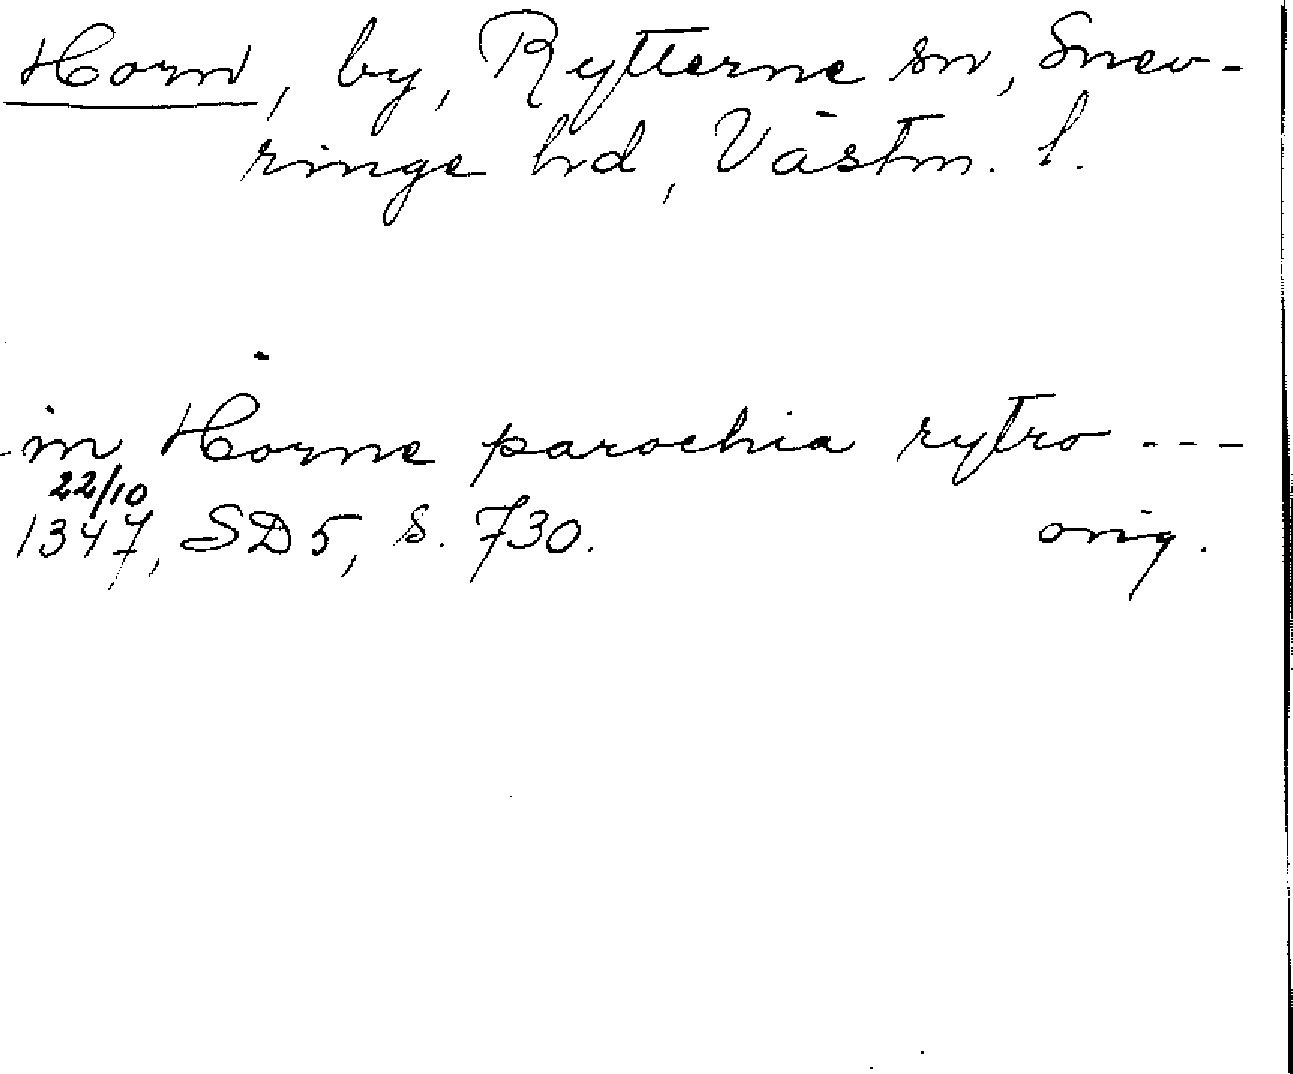 Horn, by, Rytterne sn, Snev-
ringe hd, Västm. l.
in Horne parochia rytro ---
22/10
1347, SD 5, s. 730. orig.